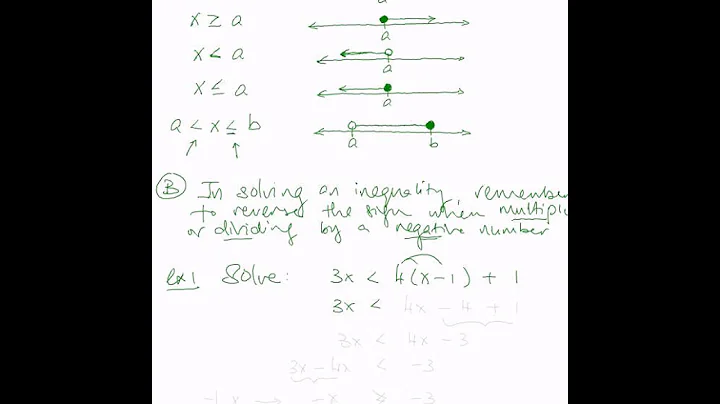 a
x ≥ a
a
x < a
a
x ≤ a
a
a < x ≤ b
a b
B In solving an inequality, remember
to reverse the sign when multipl
or dividing by a negative number
ex1 Solve: 3x < 4(x-1) + 1
3x < 4x - 4 + 1
3x < 4x - 3
3x - 4x < -3
-1x → -x > -3